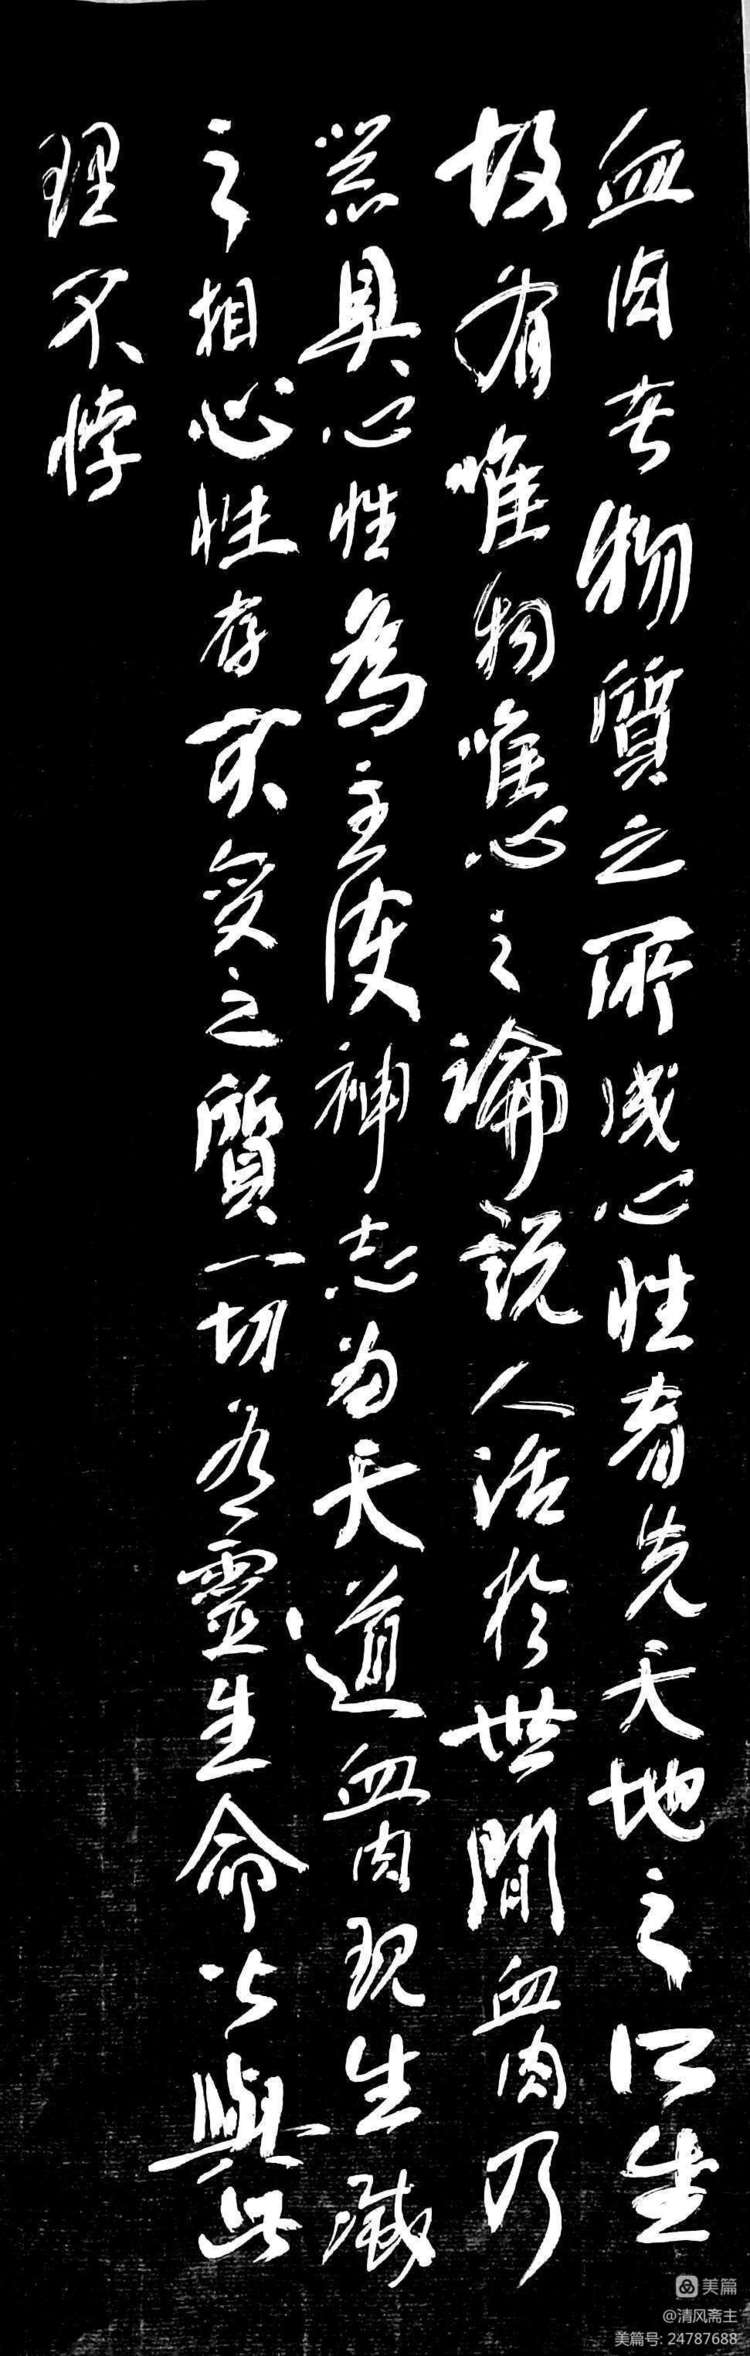 血肉者物質之所成心性者先天地之所生
故有唯物唯心之論說人活於世間血肉乃
器具心性為主使神志为天道血肉现生滅
之相心性存不变之質一切有靈生命皆與此
理不悖
美篇
@清风斋主
美篇号: 24787688